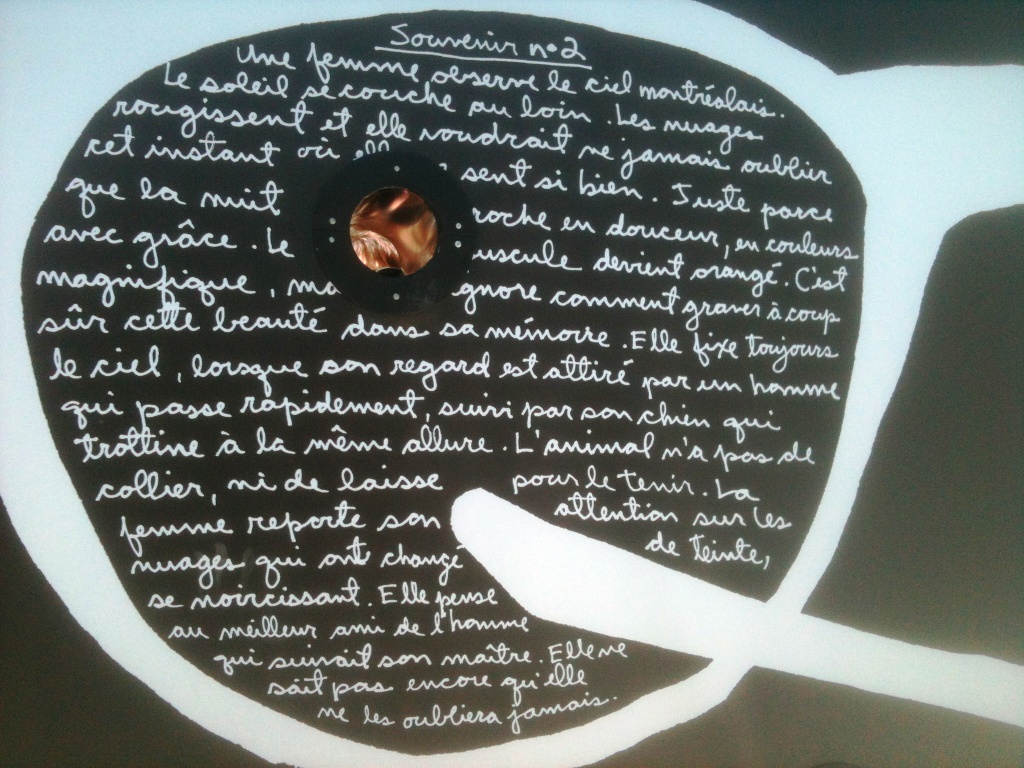 Souvenir no 2
Une femme observe le ciel montréalais.
Le soleil se couche au loin. Les nuages
rougissent et elle voudrait ne jamais oublier
cet instant où sent si bien. Juste parce
que la nuit roche en douceur, en couleurs
avec grâce. Le uscule devient orangé. C'est
magnifique, ma gnore comment graver à coup
sûr cette beauté dans sa mémoire. Elle fixe toujours
le ciel, lorsque son regard est attiré par un homme
qui passe rapidement, suivi par son chien qui
trottine à la même allure. L'animal n'a pas de
collier, ni de laisse pour le tenir. La
femme reporte son attention sur les
nuages qui ont changé de teinte,
se noircissant. Elle pense
au meilleur ami de l'homme
qui suivait son maître. Elle ne
sait pas encore qu'elle
ne les oubliera jamais.